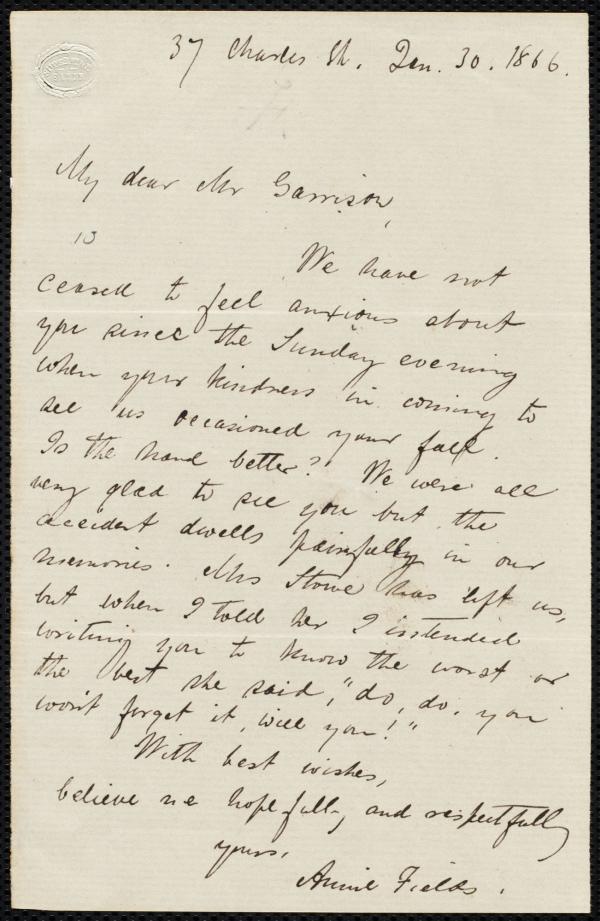 37 Charles St. Jan. 30. 1866.
My dear Mr Garrison,
13
We have not
ceased to feel anxious about
you since the Sunday evening
when your kindness in coming to
see us occasioned your fall.
Is the hand better? We were all
very glad to see you but the
accident dwells painfully in our
memories. Mrs Stowe has left us,
but when I told her I intended
writing you to know the worst or
the best she said, "do, do, you
won't forget it, will you!"
With best wishes,
believe me hopefully and respectfully
yours,
Annie Fields.